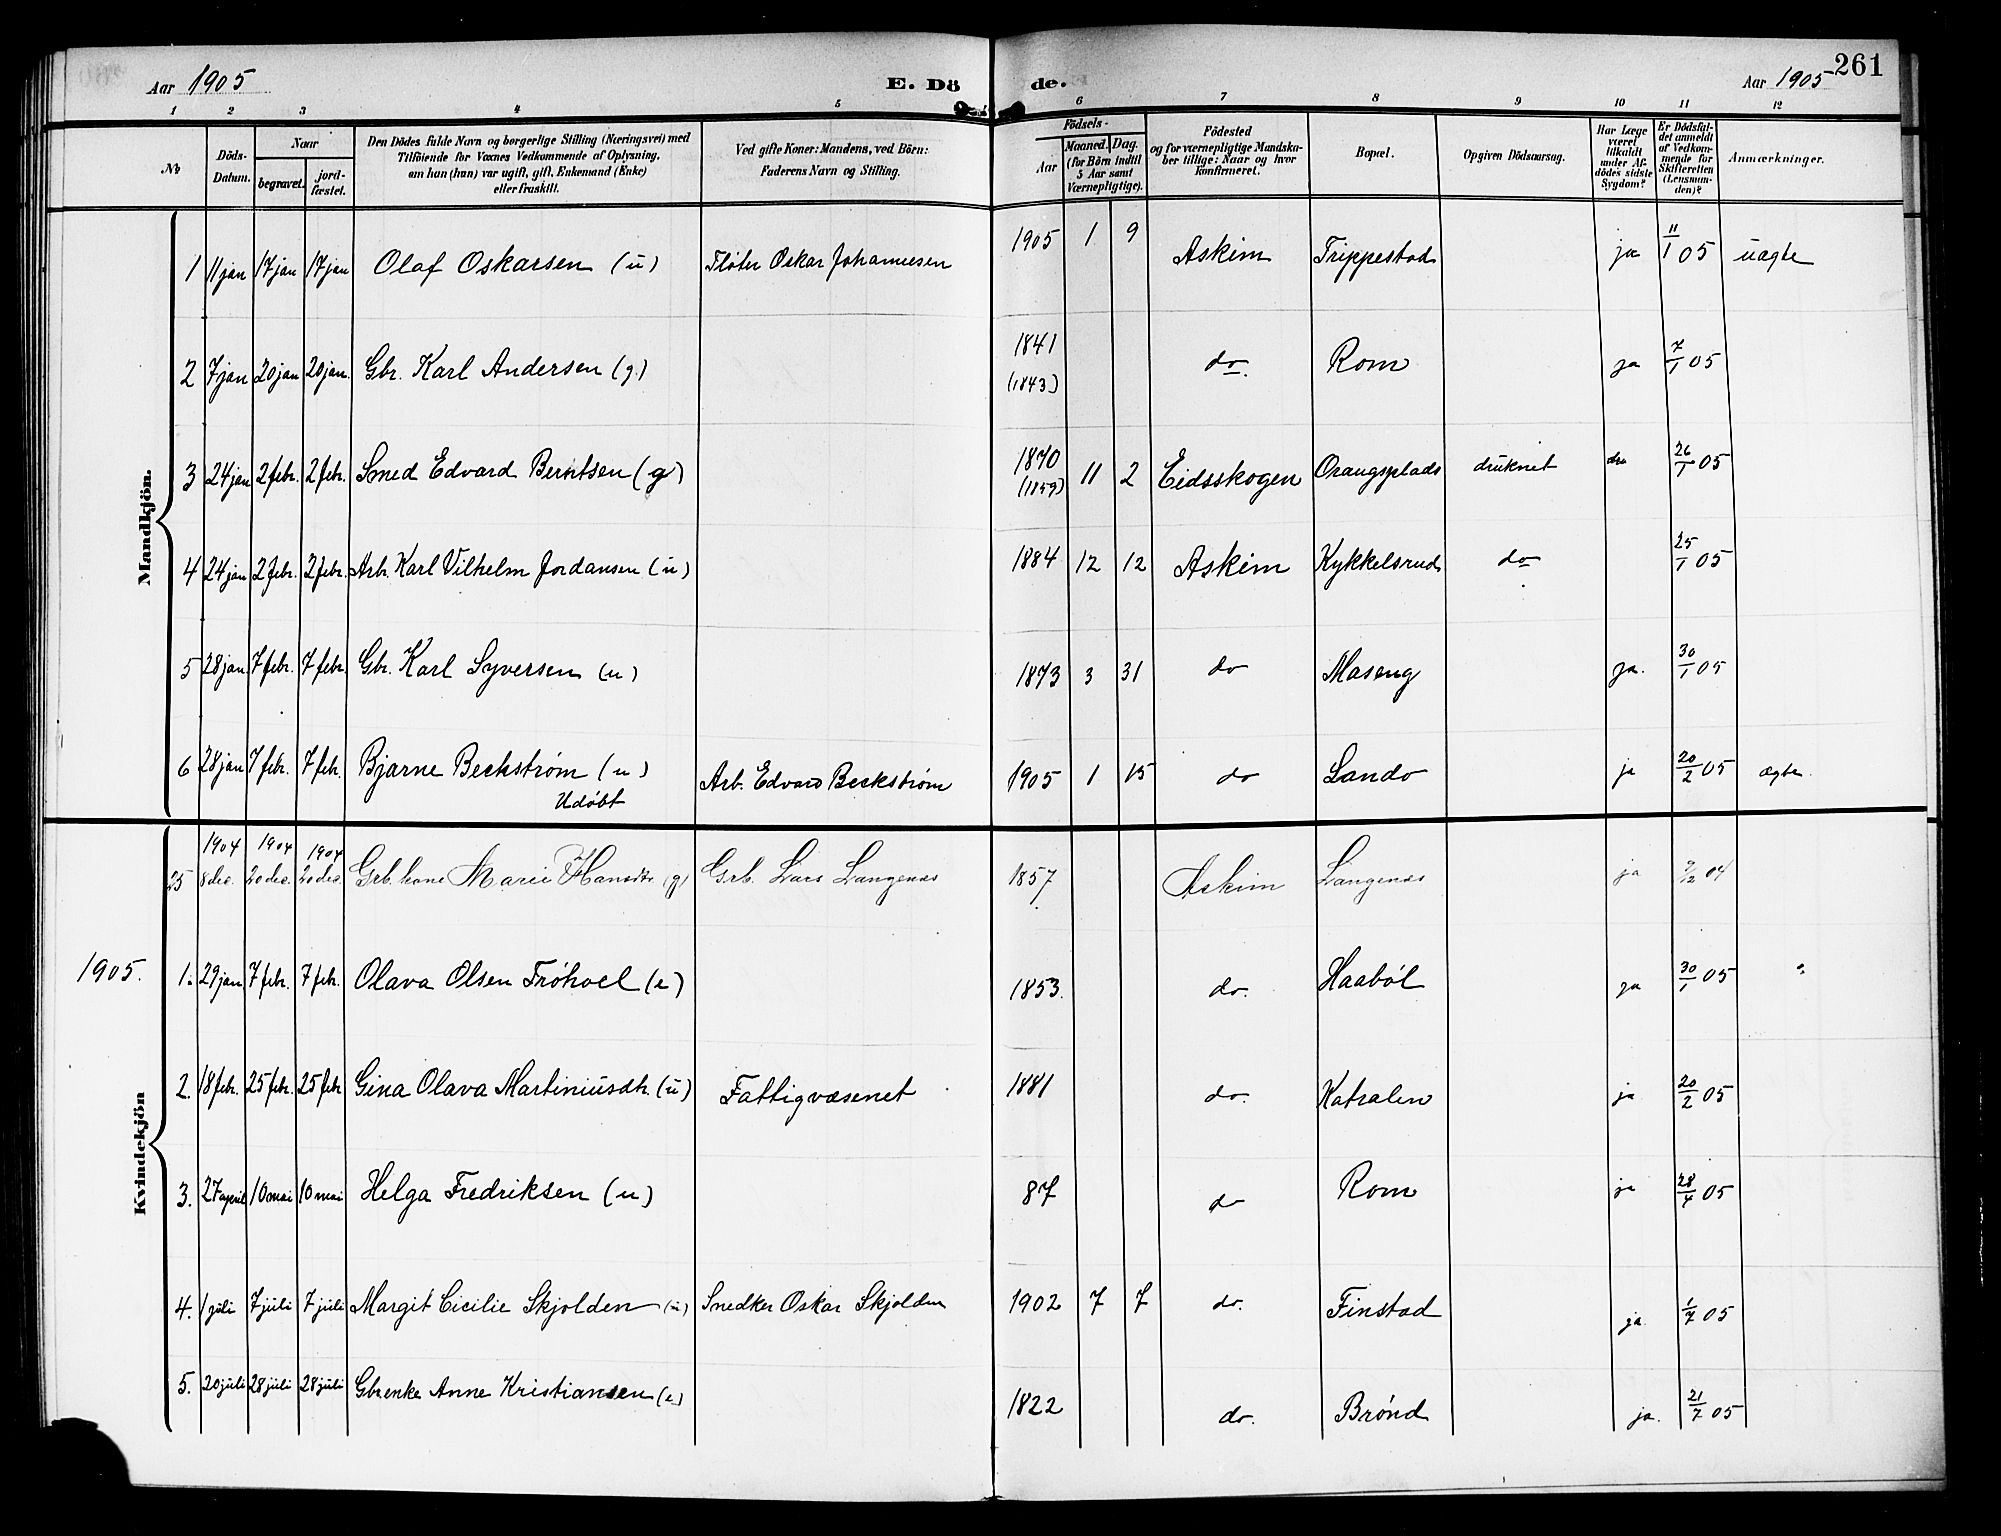 261
Aar 1905 E. Dö de. Aar 1905
1 2 3 4 5 6 7 8 9 10 11 12
No Döds-Datum. Naar begravet. jordfæstet. Den Dödes fulde Navn og borgerlige Stilling (Næringsvei) med Tilföiende for Voxnes Vedkommende af Oplysning, om han (hun) var ugift, gift, Enkemand (Enke) eller fraskilt. Ved gifte Koner: Mandens, ved Börn: Faderens Navn og Stilling. Födsels- Aar Maaned. Dag. (for Börn indtil 5 Aar samt Værnepligtige). Födested og for værnepligtige Mandskaber tillige: Naar og hvor konfirmeret. Bopæl. Opgiven Dödsaarsag. Har Læge været tilkaldt under Afdödes sidste Sygdom? Er Dödsfaldet anmeldt af Vedkommende for Skifteretten (Lensmanden)? Anmærkninger.
Mandkjön.
1 11 jan 17 jan 17 jan Olaf Oskarsen (u) Fløter Oskar Johannesen 1905 1 9 Askim Trippestad ja 11/1 05 uægte
2 7 jan 20 jan 20 jan. Gbr. Karl Andersen (g.) 1841 (1843) do. Rom ja 7/1 05
3 24 jan 2 febr. 2 febr. Smed Edvard Berntsen (g) 1870 (1859) 11 2 Eidsskogen Oraugsplads druknet 26/1 05
4 24 jan 2 febr. 2 febr. Arb. Karl Vilhelm Jordansen (u) 1884 12 12 Askim Kykkelsrud do 25/1 05
5 28 jan 7 febr. 7 febr. Gbr. Karl Syversen (u) 1873 3 31 do Maseng ja. 30/1 05
6 28 jan 7 febr. 7 febr. Bjarne Beckstrøm (u) Udøbt Arb. Edvard Beckstrøm 1905 1 15 do Sando ja 20/2 05 ægte.
Kvindekjön
25 1904 8 dec. 1904 20 dec. 1904 20 dec. Grb. kone Marie Hansdtr (g) Grb. Lars Langenæs 1857 Askim Langenæs ja 9/12 04
1905.
1. 29 jan 7 febr. 7 febr. Olava Olsen Frøhoel (e) 1853. do. Haabøl ja 30/1 05
2. 18 febr. 25 febr. 25 febr Gina Olava Martiniusdtr. (u) Fattigvæsenet 1881 do. Katralen ja 20/2 05
3. 27 april 10 mai 10 mai Helga Fredriksen (u) 87 do Rom ja 28/4 05
4. 1 juli 7 juli 7 juli Margit Cicilie Skjolden (u) Snedker Oskar Skjolden 1902 7 7 do. Finstad ja 1/7 05
5. 20 juli 28 juli 28 juli Gbrenke Anne Kristiansen (e) 1822 do. Brønd ja. 21/7 05